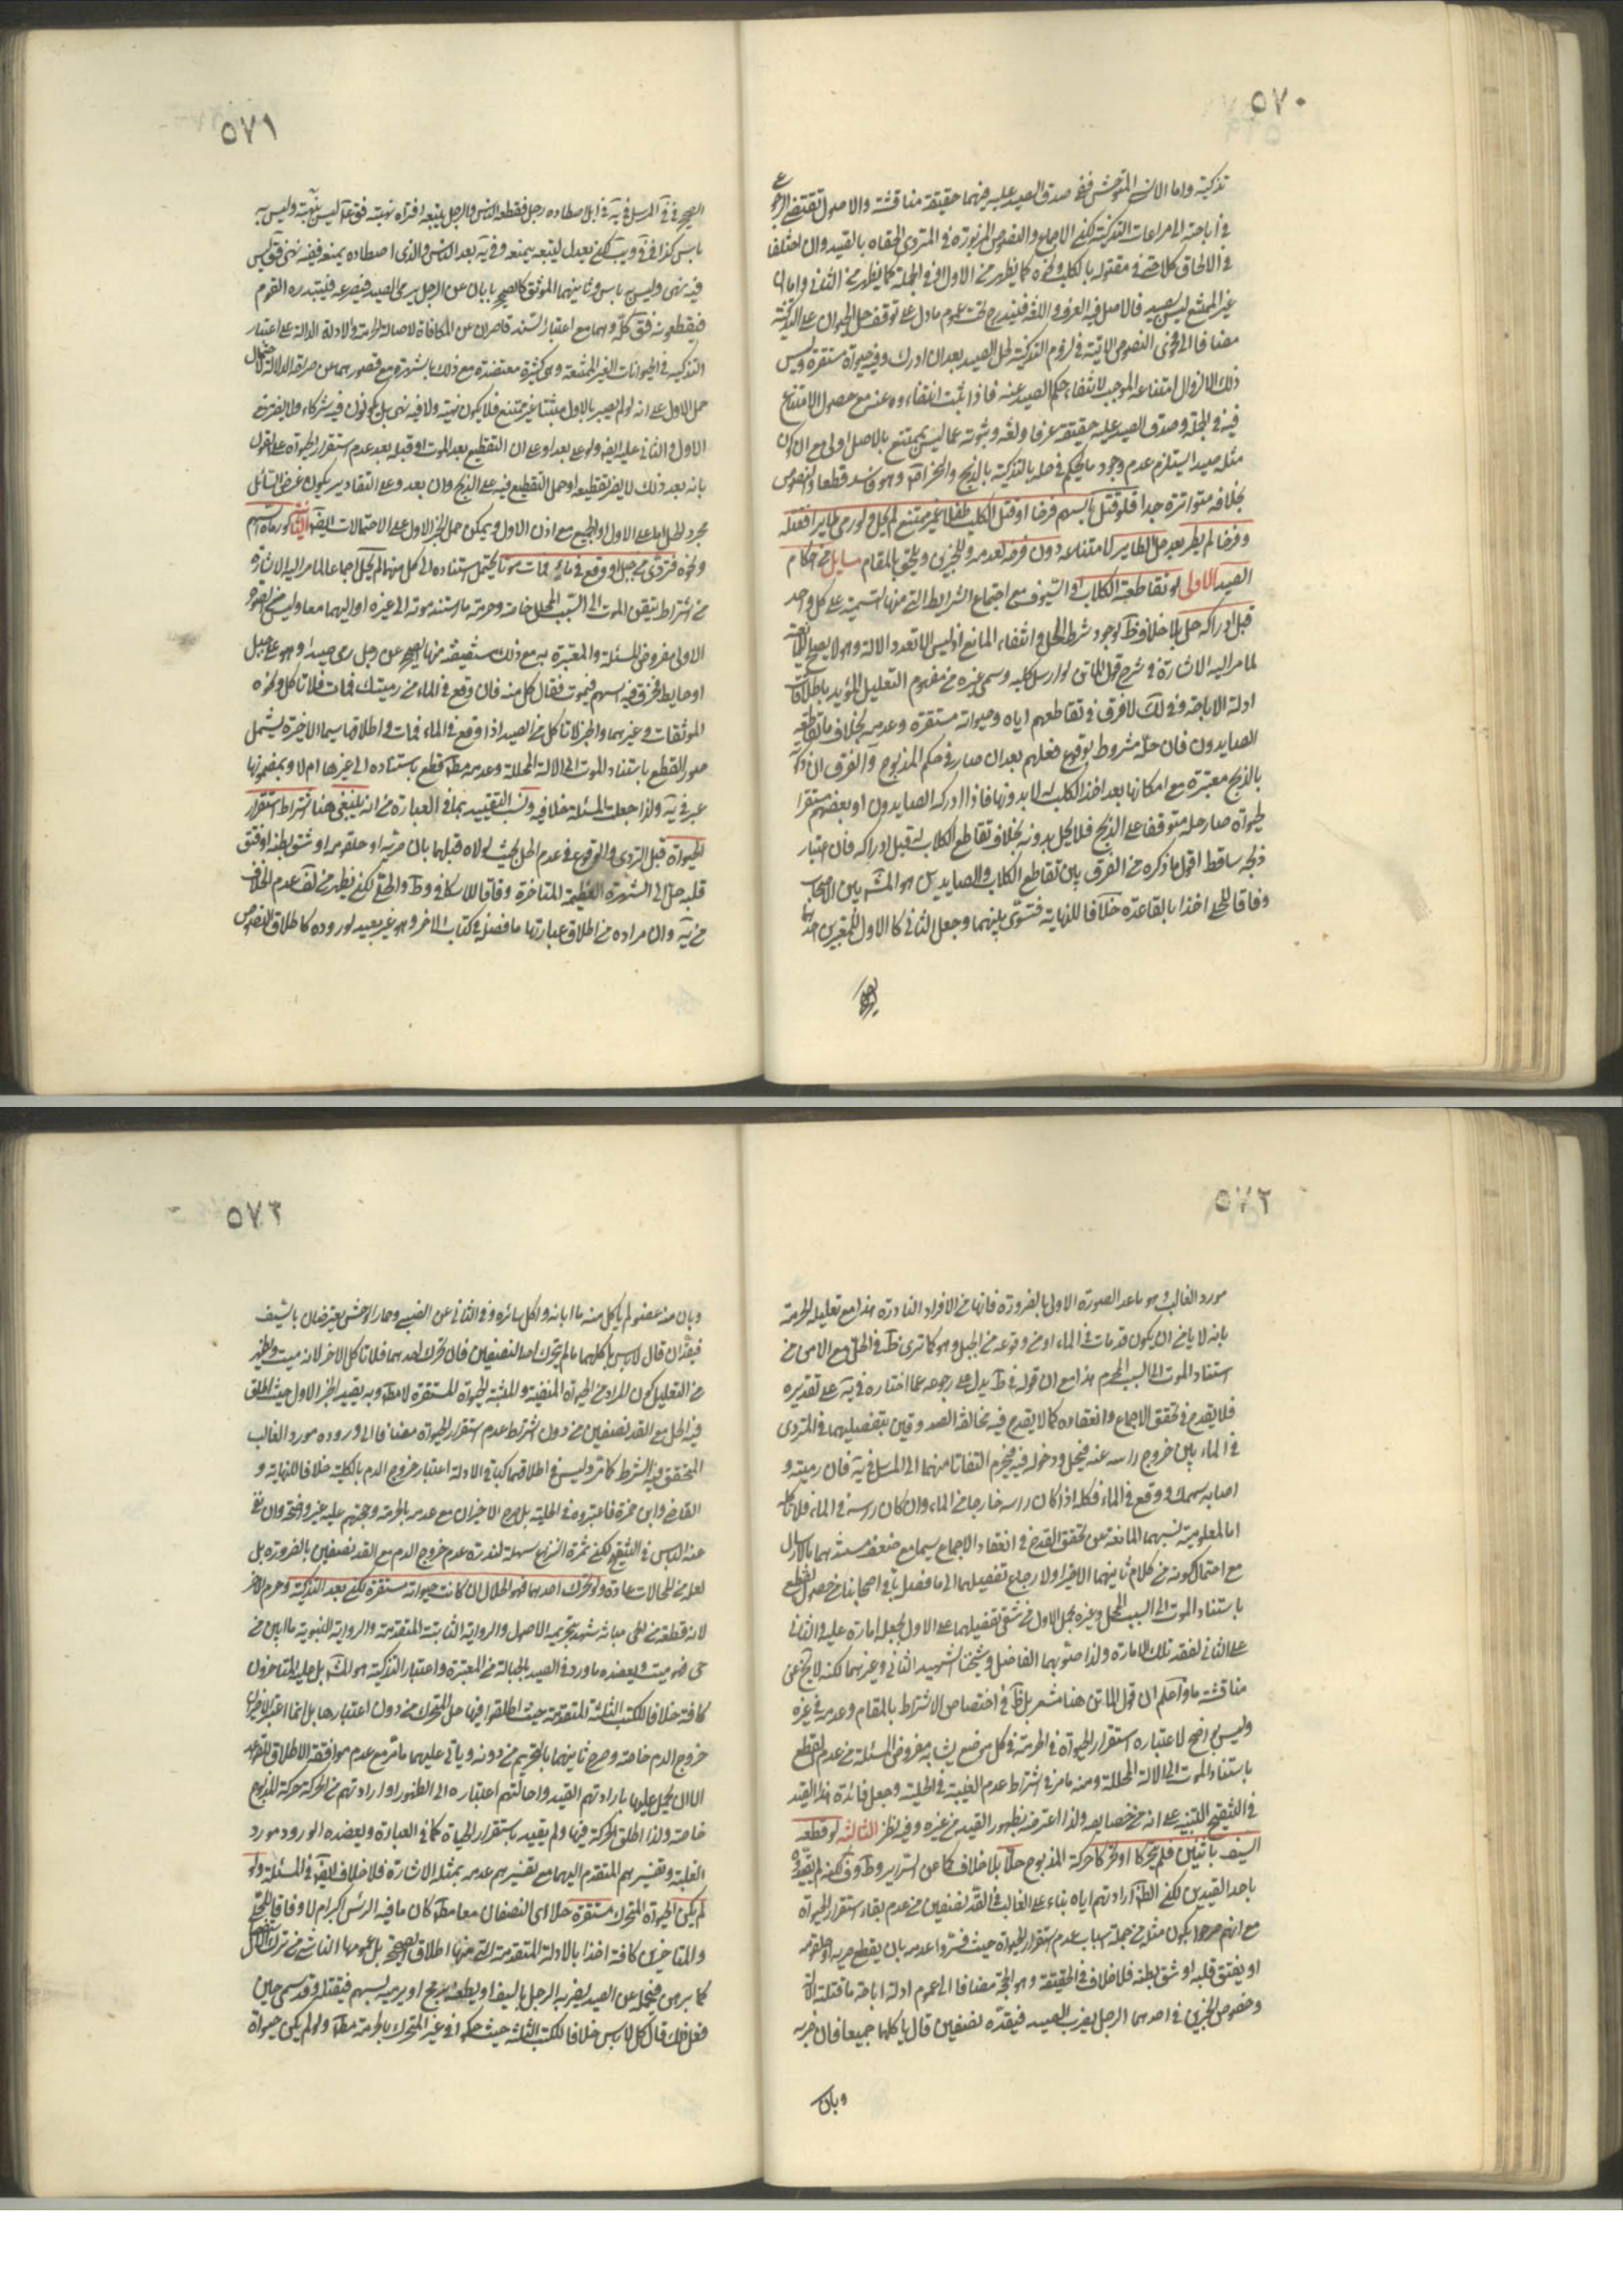 ٥٧٠
تذكيته واما الانسى المتوحش ففى صدق الصيد عليه منهما حقيقة مناقشة والاصول تقتضى الرجوع
فى اباحته الى مراعات التذكية لكن الاجماع والنصوص المزبورة فى المتردى الحقاه بالصيد وان اختلفا
فى الالحاق كلا حتى فى مقتوله بالكلب ونحوه كما يظهر من الاول او فى الجملة كما يظهر من الثانى واما ان
غير الممتنع ليس بصيد فالاصل فيه العرف واللغة فيندرج تحت عموم ما دل على توقف حل الحيوان على التذكية
مضافا الى فحوى النصوص الاتية فى لزوم التذكية لحل الصيد بعد ان ادرك وفيه حيوة مستقرة وليس
ذلك الا لزوال امتناعه الموجب لانتفاء حكم الصيد عنه فاذا ثبت انتفاءه عنه مع حصول الامتناع
فيه فى الجملة وصدق الصيد عليه حقيقة عرفا ولغة وثبوته عما ليس بممتنع بالاصل اولى مع ان كون
مثله صيد ايستلزم عدم وجود ما يحكم فى حله بالتذكية بالذبح والنحر اقه وهو فاسد قطعا والنصوص
بخلافه متواترة جدا فلو قتل بالسهم فرخا او قتل الكلب طفلا غير ممتنع لم يحل ولو رمى طايرا فقتله
وفرخا لم يطر بعد حل الطاير لامتناعه دون فرخه لعدمه وللخبرى ويلحق بالمقام مسايل من احكام
الصيد الاولى لو تقاطعته الكلاب او السيوف مع اجتماع الشرايط التى منها التسمية على كل واحد
قبل ادراكه حل بلا خلاف ظ لوجود شرط الحل وانتفاء المانع اذ ليس الا تعدد الالة وهو لا يصلح للمانعية
لما مر اليه الاشارة فى شرح قول الماتن لو ارسل كلبه وسمى غيره من مفهوم التعليل المؤيد باطلاقات
ادلة الاباحة وفى لك لا فرق فى تقاطعهم اياه وحيوته مستقرة وعدمه بخلاف ما تقاطعته
الصايدون فان حله مشروط بوقوع فعلهم بعد ان صار فى حكم المذبوح والفرق ان ذكوته
بالذبح معتبرة مع امكانها بعد اخذ الكلب له لا بدونها فاذا ادركه الصايدون او بعضهم مستقر
الحيوة صار حله متوقفا على الذبح فلا يحل بدونه بخلاف تقاطع الكلاب له قبل ادراكه فان اعتبار
ذبحه ساقط اقول ما ذكره من الفرق بين تقاطع الكلاب والصايدين هو المش بين الاصحاب
وفاقا للحلى اخذا بالقاعدة خلافا للنهاية فتسوى بينهما وجعل الثانى كالاول للمعتبرين احدهما
الصحيح
٥٧١
الصحيح فى المرسل فى يه فى ايل اصطاده رجل فقطعه الناس والرجل يتبعه افتراه نهبة فق ع ليس بنهبة وليس به
باس كذا فى فى ويب لكن بعدل ليتبعه يمنعه وفى يه بعد الناس والذى اصطاده يمنعه ففيه نهى فق ليس
فيه نهى وليس به باس وثانيهما الموثق كالصحيح بابان عن الرجل يرمى الصيد فيصرعه فيبتدره القوم
فيقطعونه فق كله وهما مع اعتبار السند قاصران عن المكافاة لاصالة الحرمة والادلة الدالة على اعتبار
التذكية فى الحيوانات الغير الممتنعة وهى كثيرة معتضدة مع ذلك بالشهرة مع قصورهما عن صراحة الدلالة لاحتمال
حمل الاول على انه لم يصير بالاول مثبتا غير ممتنع فلا يكون نهبة ولا فيه نهى بل يكونون فيه شركاء ولا يفترض
الاول والثانى عليه ايض ولو على بعد او على ان التقطيع بعد الموت او قبله بعد عدم استقرار الحيوة على القول
بانه بعد ذلك لا يضر تقطيعه او حمل التقطيع فيه على الذبح وان بعد وعلى التقادير يكون غرض السائل
مجرد الحل اما على الاول او الجميع مع اذن الاول ويمكن حمل الخبر الاول على الاحتمالات ايضا الثانية لو رماه بسهم
ونحوه فتردى من جبل او وقع فى ماء فمات موتا يحتمل استناده الى كل منها لم يحل اجماعا لما مر اليه الاشارة
من اشتراط تيقن الموت الى السبب المحلل خاصة وحرمة ما استند موته الى غيره او اليهما معا وليس فى الصورة
الاولى مفروض المسئلة والمعتبرة به مع ذلك مستفيضة منها الصحيح عن رجل رمى صيدا وهو على جبل
او حايط فخرق فيه السهم فيموت فقال كل منه فان وقع فى الماء من رميتك فمات فلا تاكل ونحوه
الموثقات وغيرهما والخبر لا تاكل من الصيد اذا وقع فى الماء فمات واطلاقها سيما الاخيرة يشمل
صور القطع باستناد الموت الى الالة المحللة وعدمه مط قطع باستناده الى غيرها ام لا وبمضمونها
عبر فى يه ولذا جعلت المسئلة خلافية ولنسب التقييد بما فى العبارة من انه ينبغى هنا اشتراط استقرار
الحيوة قبل التردى والوقوع فى عدم الحل بحيث لولاه قبلهما بان ضربه او حلقومه او شق بطنه او فتق
قلبه حل الى الشهرة العظيمة المتاخرة وفاقا للاسكافى وط والحلى لكن يظهر من لف عدم الخلاف
من يه وان مراده من اطلاق عبارتها ما فصله فى كتاب الاخر وهو غير بعيد لوروده كاطلاق النصوص
٥٧٢
مورد الغالب وهو ما عد الصورة الاولى بالضرورة فانها من الافراد النادرة هذا مع تعليله الحرمة
بانه لا يامن ان يكون قد مات فى الماء او من وقوعه من الجبل وهو كما ترى ظ فى الحل مع الامن من
استناد الموت الى السبب المحرم هذا مع ان قوله فى ط يدل على رجوعه عما اختاره فى يه على تقديره
فلا يقدح فى تحقق الاجماع وانعقاده كما لا يقدح فيه مخالفة الصدوقين بتفصيلهما فى المتردى
فى الماء بين خروج راسه عنه فيحل ودخوله فيه فيحرم التفاتا منهما الى المرسل فى يه فان رميته و
اصابه سهمك ووقع فى الماء فكله اذا كان راسه خارجا من الماء وان كان راسه فى الماء فلا تاكله
اما لمعلومية نسبهما المانعة عن تحقق القدح فى انعقاد الاجماع سيما مع ضعف مستندهما بالارسال
مع احتمال كونه من كلام ثانيهما الاخر او لارجاع تفصيلهما الى ما فصله باقى اصحابنا من حصول القطع
باستناد الموت الى السبب المحل وغيره بحمل الاول من شقى تفصيلهما على الاول لجعله امارة عليه والثانى
على الثانى لفقد تلك الامارة ولذا صوبهما الفاضل وشيخنا الشهيد الثانى وغيرهما لكنه لا يخ عن
مناقشة ما واعلم ان قول الماتن هنا مشعر بل ظ فى اختصاص الاشتراط بالمقام وعدمه فى غيره
وليس بواضح لاعتباره استقرار الحيوة فى الحرمة فى كل موضع يشابه مفروض المسئلة من عدم القطع
باستناد الموت الى الالة المحللة ومنه ما مر فى اشتراط عدم الغيبة فى الحلية وجعل فائدة هذا القيد
فى التنقيح التنبيه على انه من خصايصه ولذا اعترضه بظهور القيد من غيره وفيه نظر الثالثه لو قطعه
السيف باثنين فلم يتحركا او تحركا حركة المذبوح حلا بلا خلاف كما عن السراير وط وف لكنهم لم يقيدوه
باحد القيدين لكن الظ ارادتهم اياه بناء على الغالب فى القد نصفين من عدم بقاء استقرار الحيوة
مع انهم صرحوا بكون مثله من جملة اسباب عدم استقرار الحيوة حيث فسروا عدمه بان يقطع مريه او حلقومه
او يفتق قلبه او شق بطنه فلا خلاف فى الحقيقة وهو الحجة مضافا الى عموم ادلة اباحة ما قتلته الالة
وخصوص الخبرين فى احدهما الرجل يضرب الصيد فيقده نصفين قال ياكلهما جميعا فان ضربه
وبان
٥٧٣
وبان منه عضو لم ياكل منه ما ابانه واكل سائره وفى الثانى عن الضبى وحمار الوحش يعترضان بالسيف
فيقدان قال لا باس باكلهما ما لم يتحرك احد النصفين فان تحرك احدهما فلا تاكل الاخر لانه ميت والظ
من التعليل كون المراد من الحيوة المنفية والمثبتة الحيوة المستقرة لا مط وبه يقيد الخبر الاول حيث اطلق
فيه الحل مع القد نصفين من دون اشتراط عدم استقرار الحيوة مضافا الى وروده مورد الغالب
المتحقق فيه الشرط كما مر وليس فى اطلاقهما كباقى الادلة اعتبار خروج الدم بالكلية خلافا للنهاية و
القاضى وابن حمزة فاعتبروه فى الحلية بل صرح الاخيران مع عدمه بالحرمة وحجتهم عليه غير واضحة وان نفى
عنه الباس فى التنقيح لكن ثمرة النزاع سهلة لندرة عدم خروج الدم مع القد نصفين بالضرورة بل
لعله من المحالات عادة ولو تحرك احدهما فهو الحلال ان كانت حيوته مستقرة لكن بعد التذكية وحرم الاخر
لانه قطعة من حى مبانة شهد بتحريمه الاصول والرواية الثابتة المتقدمة والرواية النبوية ما ابين من
حى فهو ميت ويعضده ما ورد فى الصيد بالحبالة من المعتبرة واعتبار التذكية هو المش بل عليه المتاخرون
كافة خلافا للكتب الثلثة المتقدمة حيث اطلقوا فيها حل المتحرك من دون اعتبارها بل انما اعتبر الاخيران
خروج الدم خاصة وصرح ثانيهما بالتحريم من دونه وياتى عليهما ما مر مع عدم موافقة الاطلاق للقواعد
الا ان يحمل عليها بارادتهم القيد واحالتهم اعتباره الى الظهور او ارادتهم من الحركة حركة المذبوح
خاصة ولذا اطلق الحركة فيها ولم يقيد باستقرار الحياة كما فى العبارة ويعضده الورود مورد
الغلبة وتفسيرهم المتقدم اليهما مع تفسيرهم عدمه بمثله الاشارة فلا خلاف ايضا فى المسئلة ولو
لم يكن الحيوة المتحرك مستقرة حلا اى النصفان معا مط كان ما فيه الراس اكبر ام لا وفاقا للحلى
والمتاخرين كافة اخذا بالادلة المتقدمة التى منها اطلاق الصحيح بل عمومها الناشى من ترك الاستفصال
كما برهن فى محله عن الصيد يضربه الرجل بالسيف او يطعنه برمح او يرميه بسهم فيقتله وقد سمى حين
فعل ذلك قال كل لا باس خلافا للكتب الثلثة حيث حكموا فى غير المتحرك بالحرمة مط ولو لم يكن حيوة